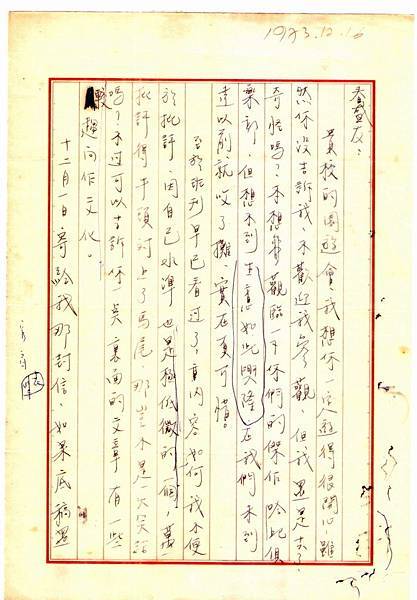 1973.12.16
友：
貴校的園遊會，我想你一定逛得很開心，雖
然你沒告訴我，不歡迎我參觀，但我還是去了，
奇怪嗎？不想參觀臨一下你們的傑作哈比俱
樂部，但想不到生意如此興隆，在我們未到
達以前就收了攤，實在夏可惜。
至於班刊早已看過了，內容如何我不便
於批評，因自己水準也是極低微的一個，萬一
批評得牛頭對上了馬尾，那豈不是大笑話
嗎？不过可以告訴你，裏面的文章有一些
較趨向作文化。
十二月一日寄給我那封信，如果底稿還